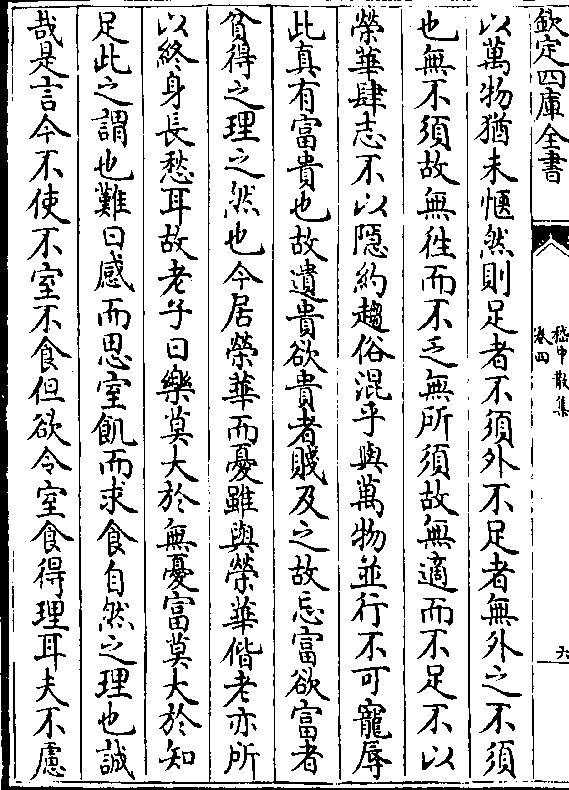 欽定四庫全書
嵇中散集
卷四
六
以萬物猶未愜然則足者不須外不足者無外之不須
也無不須故無徃而不乏無所須故無適而不足不以
榮華肆志不以隱約趨俗混乎與萬物並行不可寵辱
此真有富貴也故遺貴欲貴者賤及之故忘富欲富者
貧得之理之然也今居榮華而憂雖與榮華偕老亦所
以終身長愁耳故老子曰樂莫大於無憂富莫大於知
足此之謂也難曰感而思室飢而求食自然之理也誠
哉是言今不使不室不食但欲令室食得理耳夫不慮